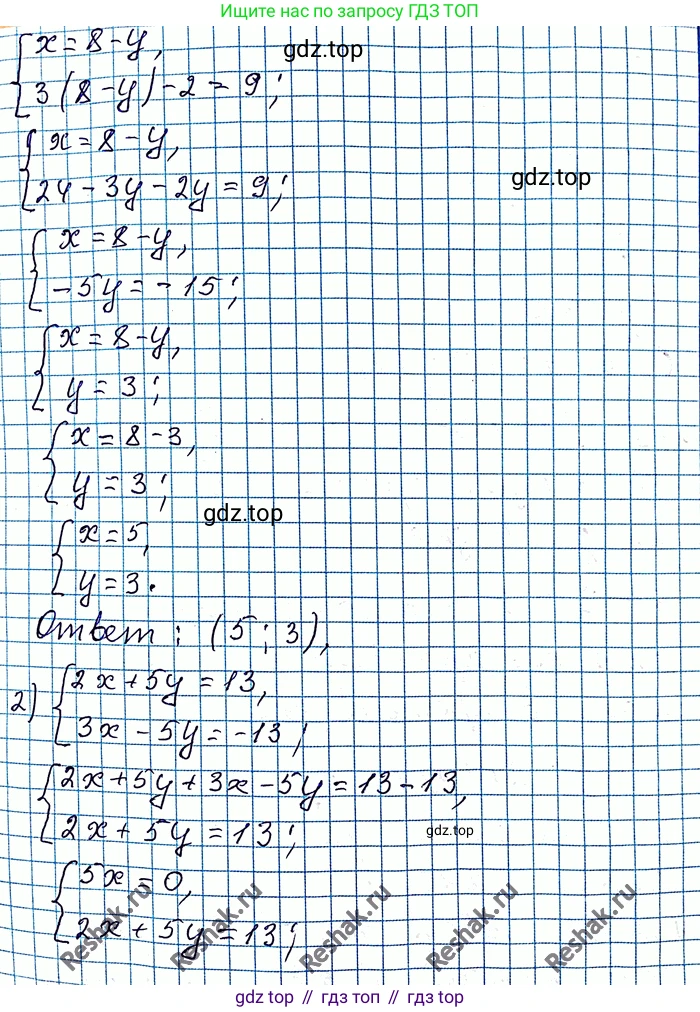 Ищите нас по запросу ГДЗ ТОП
x = 8 - y,
gdz.top
3(8 - y) - 2 = 9;
x = 8 - y,
gdz.top
24 - 3y - 2y = 9;
x = 8 - y,
-5y = -15;
x = 8 - y,
y = 3;
x = 8 - 3,
y = 3;
gdz.top
x = 5,
y = 3.
Ответ: (5; 3),
2) 2x + 5y = 13,
3x - 5y = -13;
2x + 5y + 3x - 5y = 13 - 13,
2x + 5y = 13;
gdz.top
5x = 0,
2x + 5y = 13;
Reshak.ru Reshak.ru Reshak.ru Reshak.ru Reshak.ru
gdz top // гдз топ // gdz top